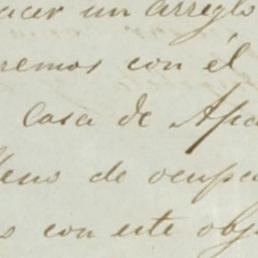 hacer un arreglo
remos con él
Casa de Apa
lleno de ocupa
s con este obj